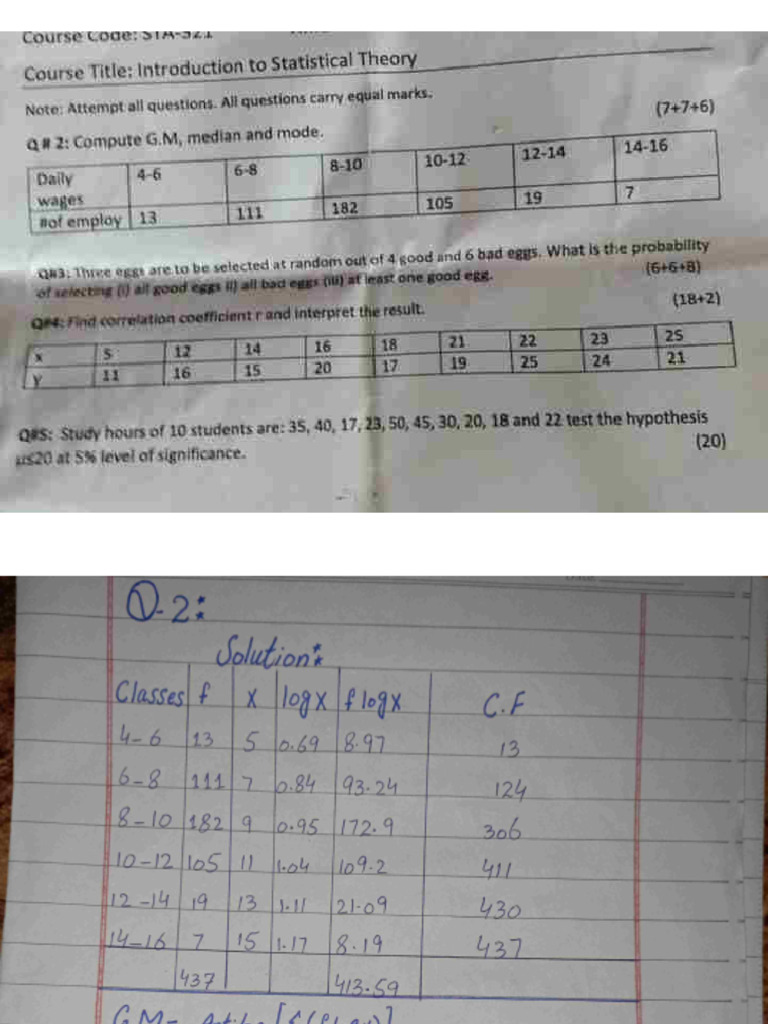 Course Code: STA-321
Course Title: Introduction to Statistical Theory
Note: Attempt all questions. All questions carry equal marks.
Q # 2: Compute G.M, median and mode. (7+7+6)
Daily wages 4-6 6-8 8-10 10-12 12-14 14-16
#of employ 13 111 182 105 19 7
Q#3: Three eggs are to be selected at random out of 4 good and 6 bad eggs. What is the probability
of selecting (i) all good eggs ii) all bad eggs (iii) at least one good egg. (6+6+8)
Q#4: Find correlation coefficient r and interpret the result. (18+2)
x 5 12 14 16 18 21 22 23 25
y 11 16 15 20 17 19 25 24 21
Q#5: Study hours of 10 students are: 35, 40, 17, 23, 50, 45, 30, 20, 18 and 22 test the hypothesis
μ≤20 at 5% level of significance. (20)
Q.2:
Solution:
Classes f x logx f logx C.F
4-6 13 5 0.69 8.97 13
6-8 111 7 0.84 93.24 124
8-10 182 9 0.95 172.9 306
10-12 105 11 1.04 109.2 411
12-14 19 13 1.11 21.09 430
14-16 7 15 1.17 8.19 437
437 413.59